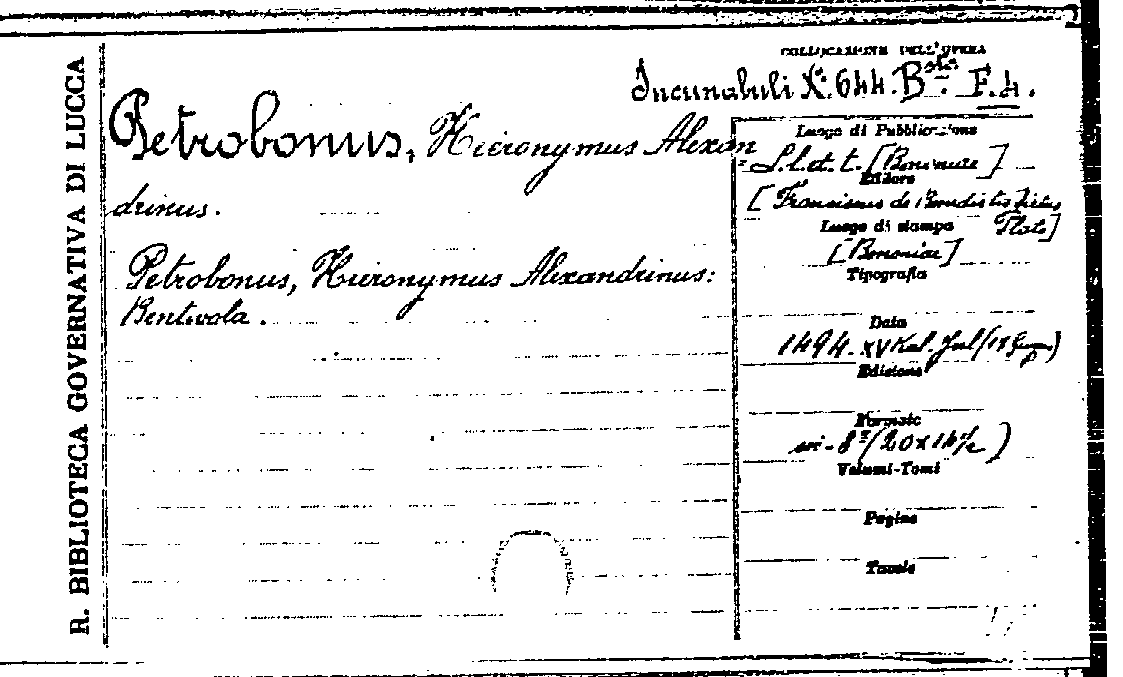 R. BIBLIOTECA GOVERNATIVA DI LUCCA
COLLOCAZIONE DELL'OPERA
Incunabuli N.º 644. B.ta F.4.
Petrobonus, Hieronymus Alexan
drinus.
Petrobonus, Hieronymus Alexandrinus:
Bentivola.
Luogo di Pubblicazione
S. l. et. t. [Bononiae]
Editore
[Franciscus de Benedictis
Plato]
Luogo di stampa
[Bononiae]
Tipografia
Data
1494. XV Kal. Jul (
Edizione
Formato
in-8º (20x14
Volumi-Tomi
Pagine
Tavole